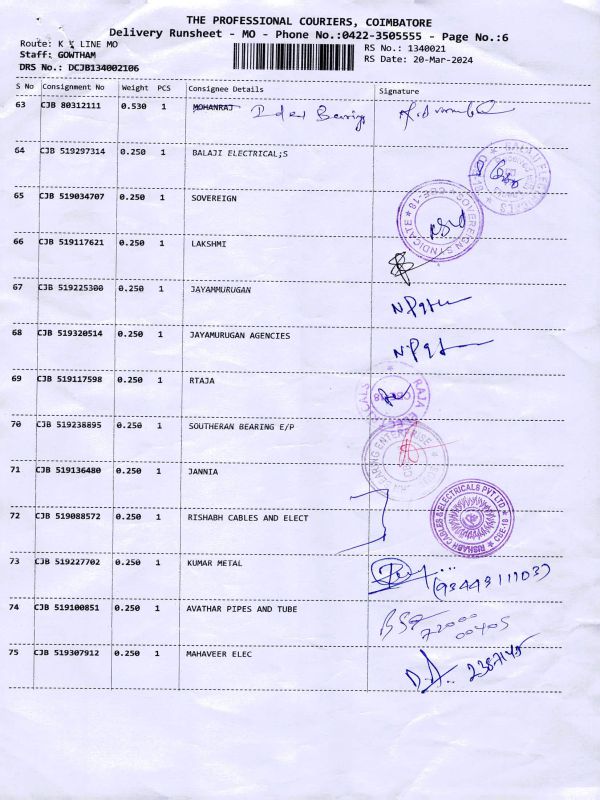 THE PROFESSIONAL COURIERS, COIMBATORE
Delivery Runsheet - MO - Phone No.:0422-3505555 - Page No.:6
Route: K K LINE MO
RS No.: 1340021
Staff: GOWTHAM
RS Date: 20-Mar-2024
DRS No.: DCJB134002106
S No Consignment No Weight PCS Consignee Details Signature
63 CJB 80312111 0.530 1 MOHANRAJ
64 CJB 519297314 0.250 1 BALAJI ELECTRICAL;S
65 CJB 519034707 0.250 1 SOVEREIGN
SOVEREIGN SYNDICATE ★ CBE-18 ★
66 CJB 519117621 0.250 1 LAKSHMI
67 CJB 519225300 0.250 1 JAYAMMURUGAN
68 CJB 519320514 0.250 1 JAYAMURUGAN AGENCIES
69 CJB 519117598 0.250 1 RTAJA
RAJA
70 CJB 519238895 0.250 1 SOUTHERAN BEARING E/P
BEARING ENTERPRISE
71 CJB 519136480 0.250 1 JANNIA
72 CJB 519088572 0.250 1 RISHABH CABLES AND ELECT
RISHABH CABLES & ELECTRICALS PVT LTD ★ CBE-18 ★
73 CJB 519227702 0.250 1 KUMAR METAL
(9344311103)
74 CJB 519100851 0.250 1 AVATHAR PIPES AND TUBE
72000
00405
75 CJB 519307912 0.250 1 MAHAVEER ELEC